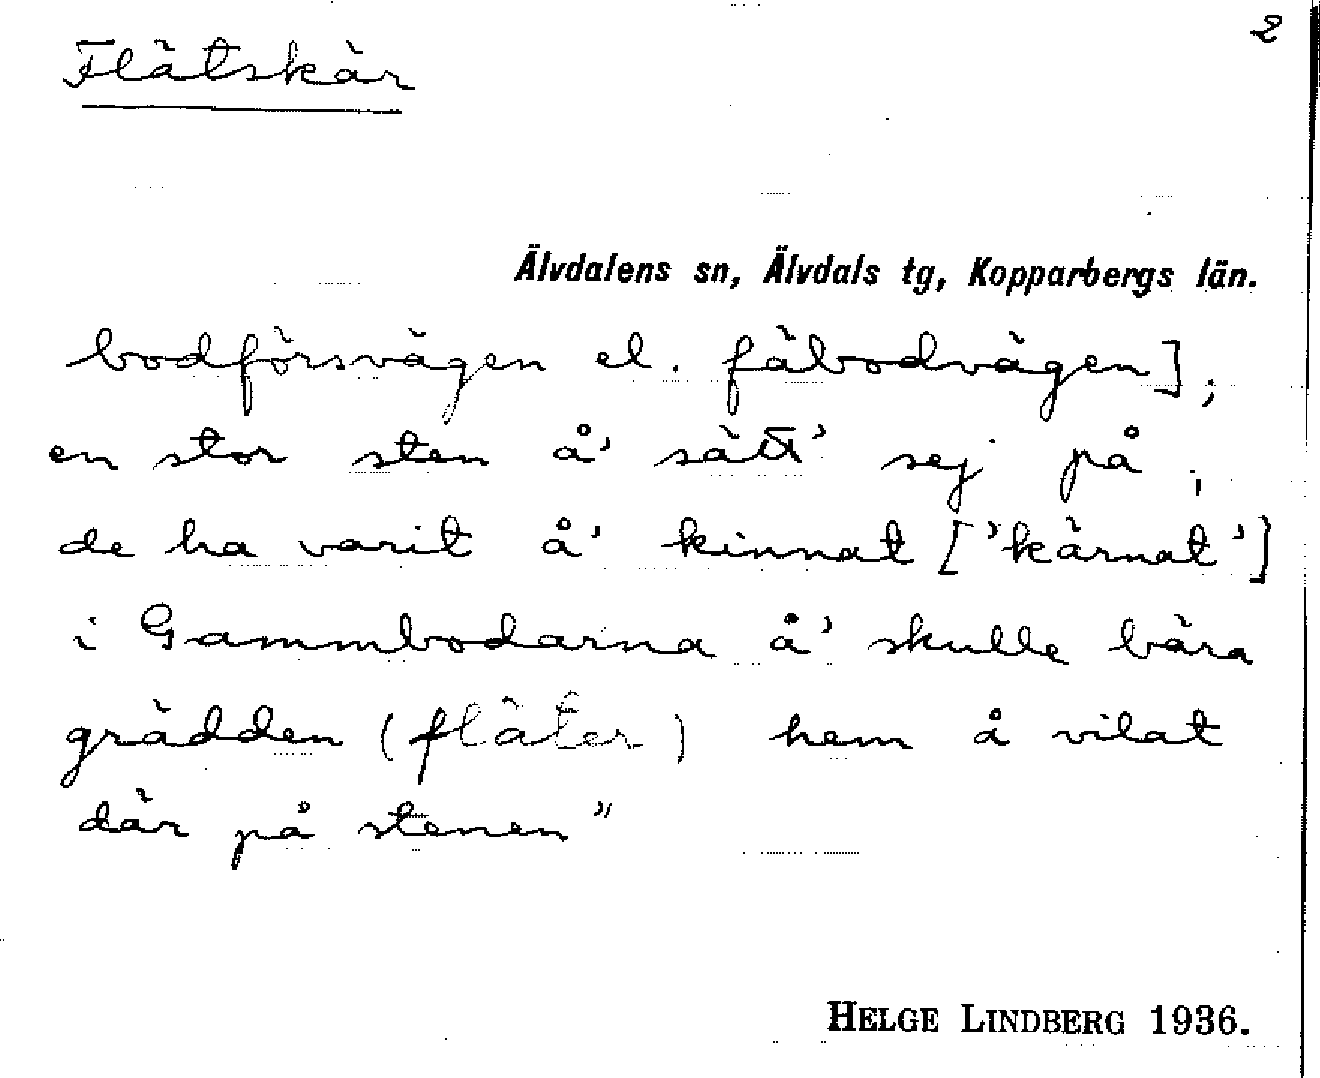 2
Flätskär
Älvdalens sn, Älvdals tg, Kopparbergs län.
bodförsvägen el. fäbodvägen];
en stor sten å' sätt' sej på;
de ha varit å' kinnat ['kärnat']
i Gammbodarna å' skulle bära
grädden (fläter) hem å vilat
där på stenen"
HELGE LINDBERG 1936.